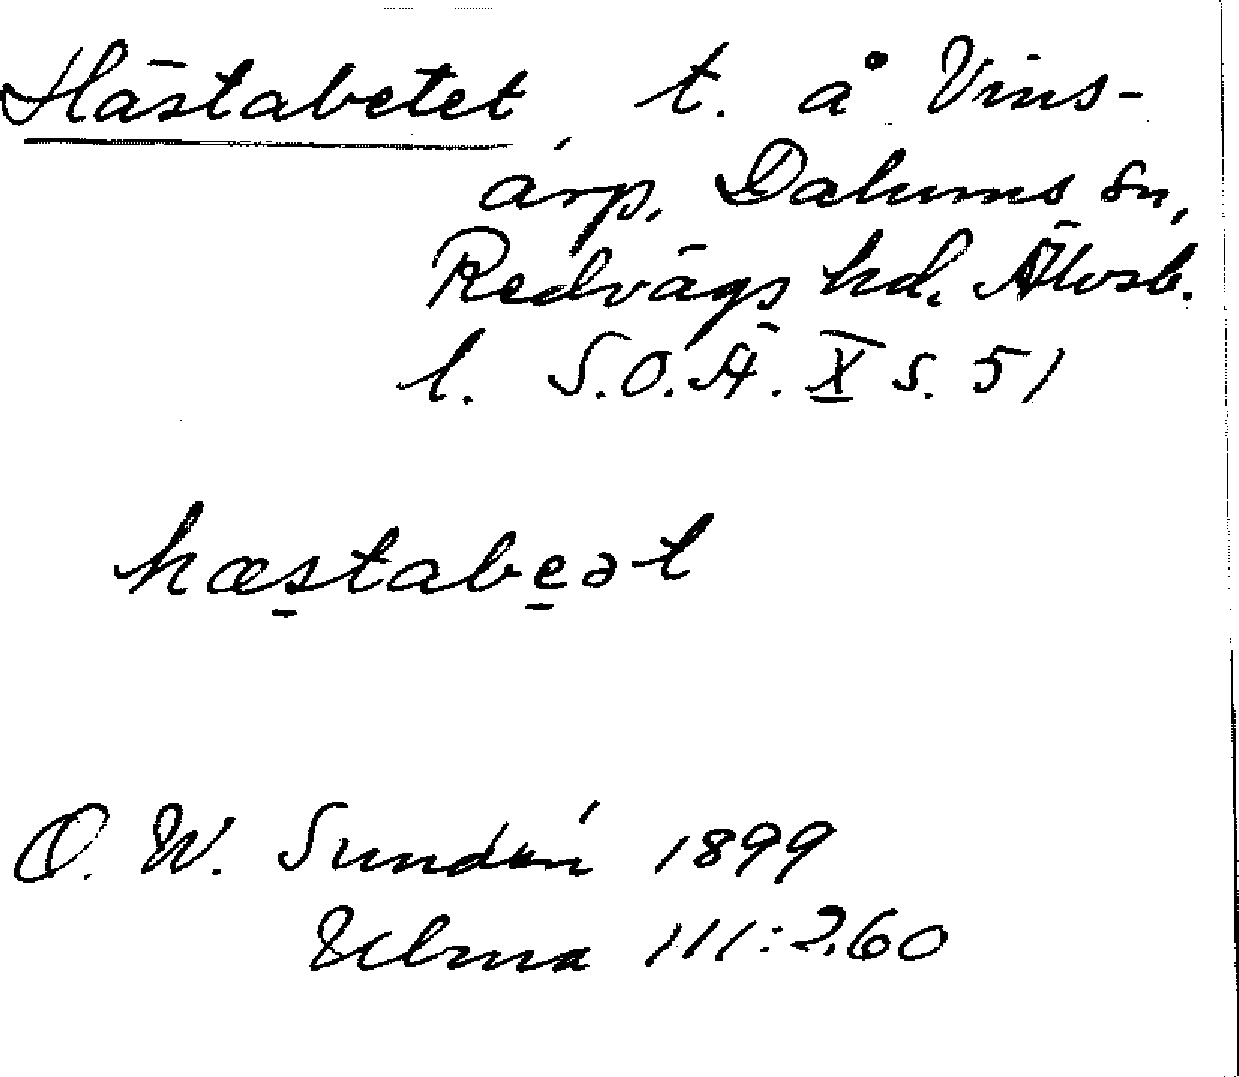 Hästabetet, t. å Vins-
arp, Dalums sn,
Redvägs hd. Älvsb.
l. S.O.Ä. X s. 51
hæstabeət
O. W. Sundén 1899
Ulma 111:260